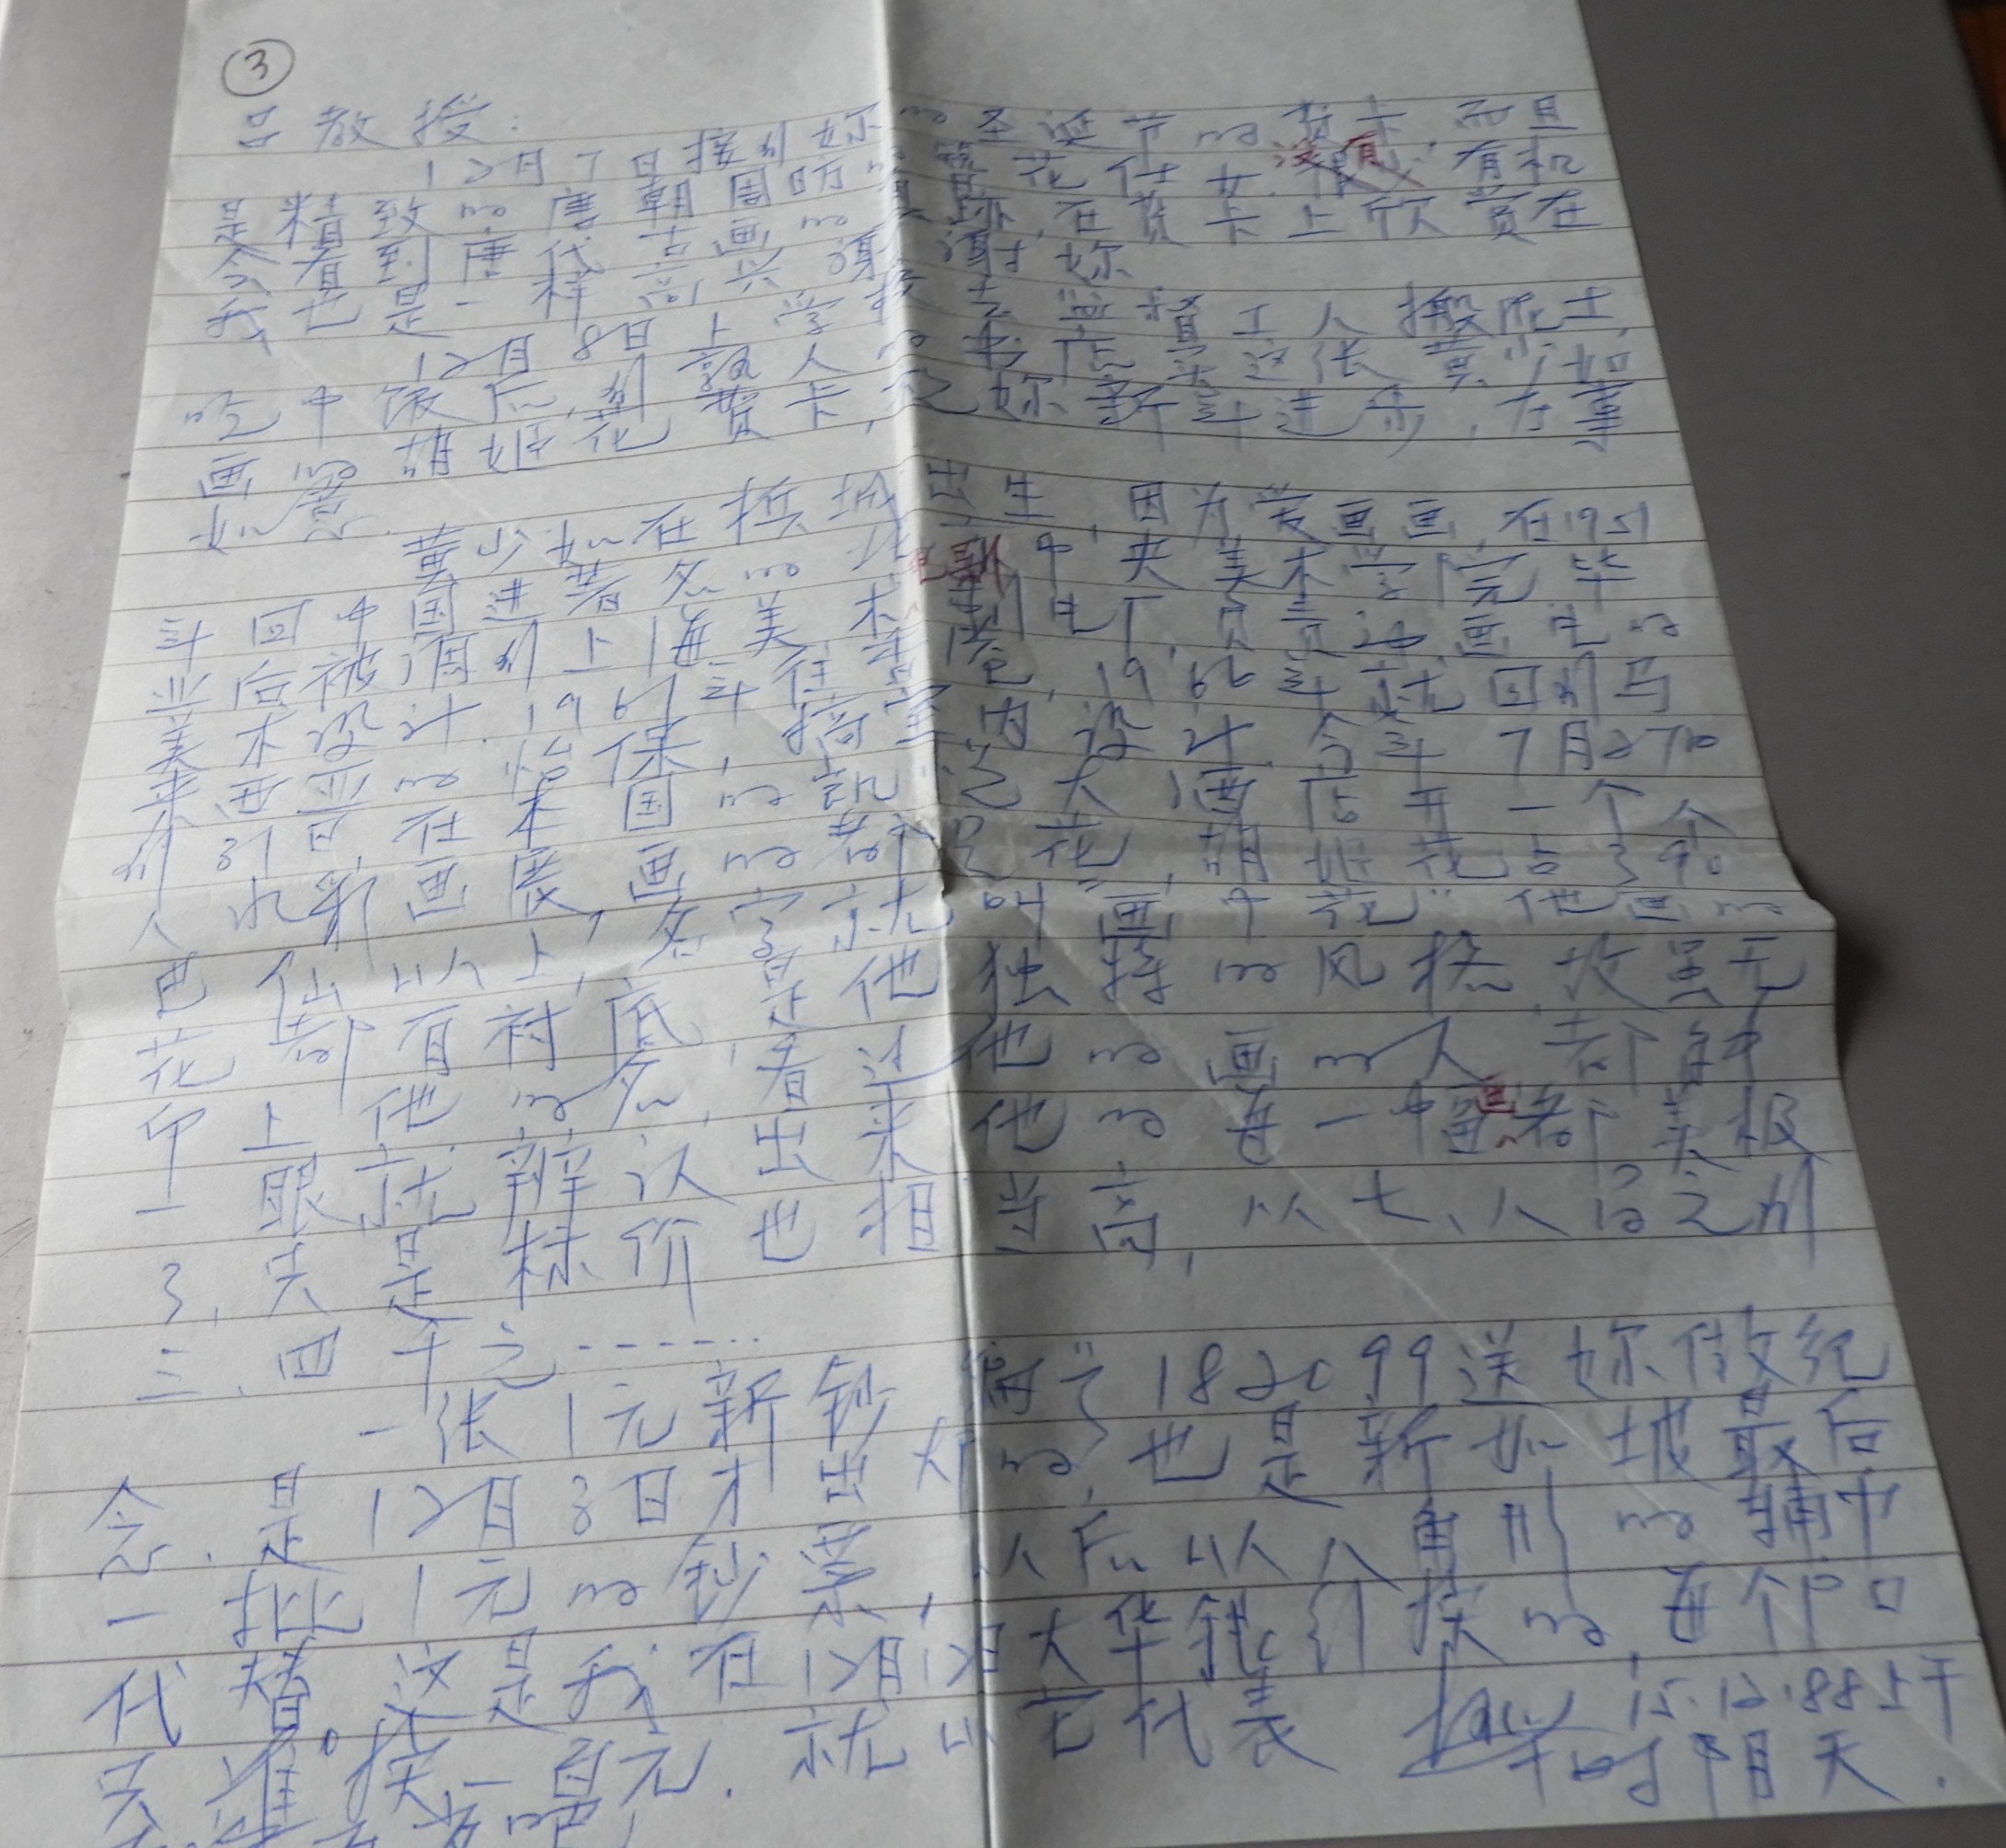 ③
吕教授:
12月7日接到妳的圣诞节的贺卡,而且
是精致的唐朝周昉的簪花仕女.没有有机
会看到唐代古画的真迹,在贺卡上欣赏在
我也是一样高兴.谢谢妳
12月8日上学校去监督工人搬泥土,
吃中饭后,到熟人的书店买这张黄少如
画的胡姬花贺卡,祝妳新年进步,万事
如意.
黄少如在槟城出生,因为爱画画,在1951
年回中国进著名的北京中央美术学院毕
业后被调到上海美术电影制片厂,负责动画片的
美术设计.1961年往香港,1966年就回到马
来西亚的怡保,搞室内设计.今年7月27日
到31日,在本国的大酒店开一个个
人水彩画展,画的都是花,胡姬花占了90
巴仙以上,名字就叫"画中花"他画的
花都有衬底,是他独特的风格,故虽无
印上他的名,看过他的画的人,都能
一眼就辨认出来.他的每一幅画都美极
了,只是标价也相当高,从七、八百元到
三、四千元------
一张1元新钞,编号182099送妳做纪
念.是12月8日才出炉的,也是新加坡最后
一批1元的钞票,以后以八角形的辅币
代替。这是我在12月12日大华银行换的,每个户口
只准换一百元.就以它代表
15.12.88上午
时阴天.